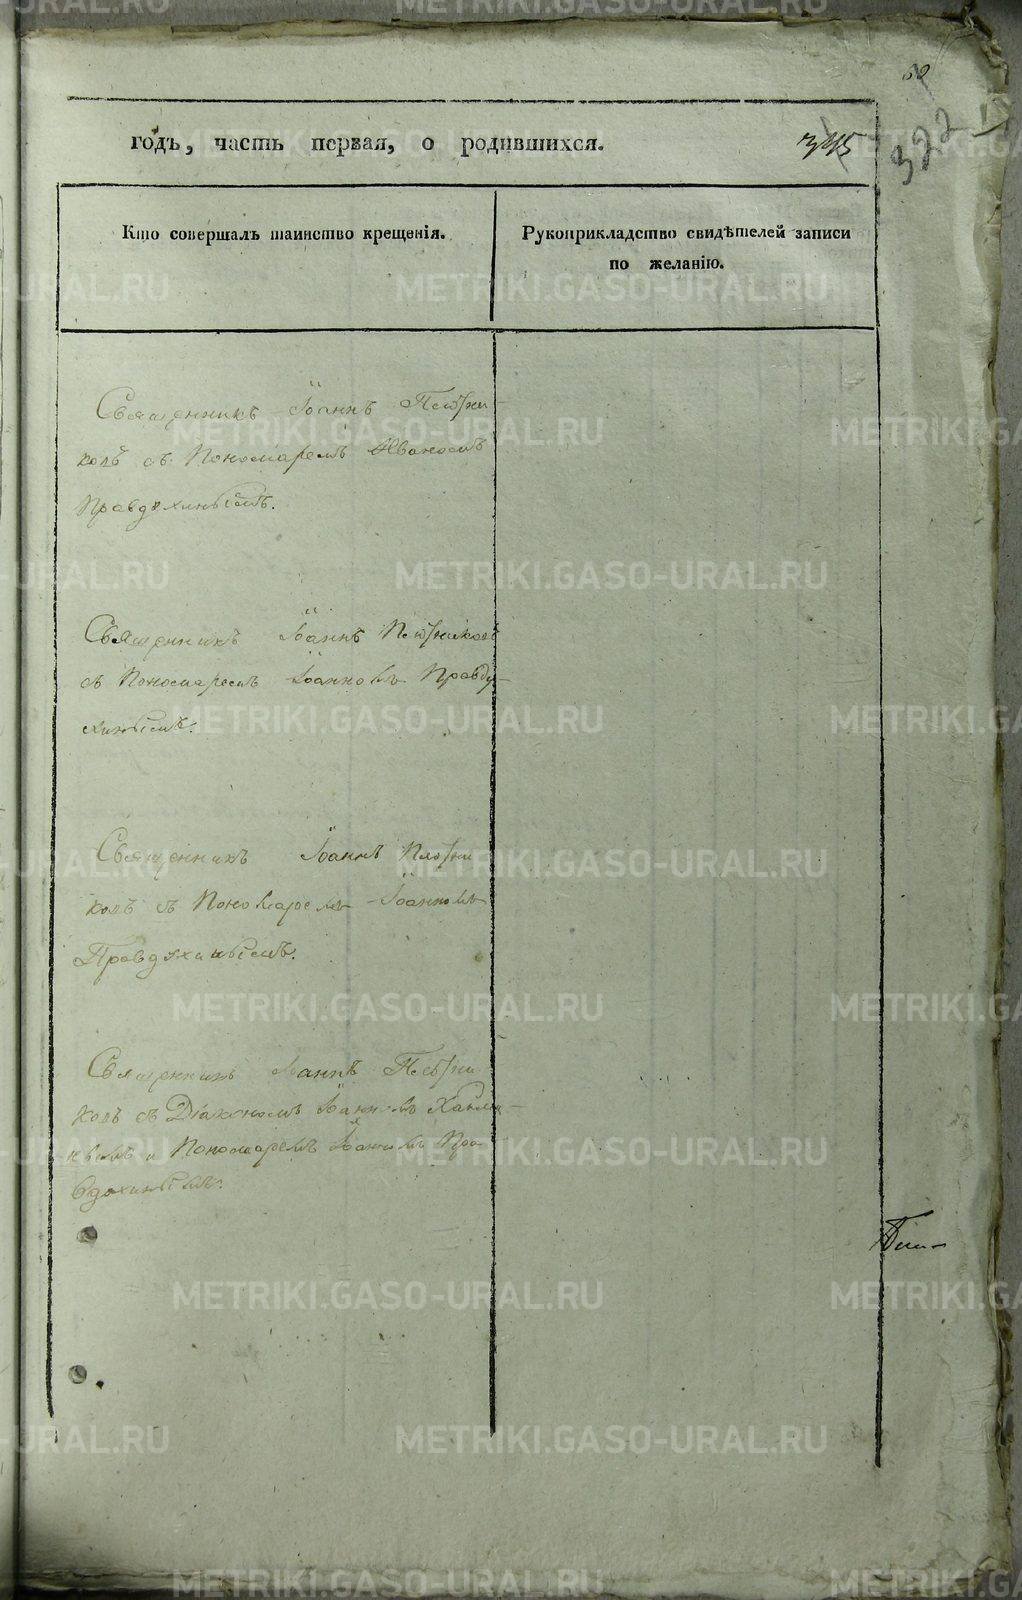 60
322
345
годъ, часть первая, о родившихся.
Кто совершалъ таинство крещенія.
Рукоприкладство свидѣтелей записи
по желанію.
Священникъ Іоаннъ
ковъ съ Пономаремъ Иваномъ
Правдухинымъ.
Священникъ Іоаннъ
съ Пономаремъ Іоанномъ Правду-
хинымъ.
Священникъ Іоаннъ
ковъ съ Пономаремъ Іоанномъ
Правдухинымъ.
Священникъ Іоаннъ
ковъ съ Діакономъ Іоанномъ
и Пономаремъ Іоанномъ Пра-
вдухинымъ.
METRIKI.GASO-URAL.RU